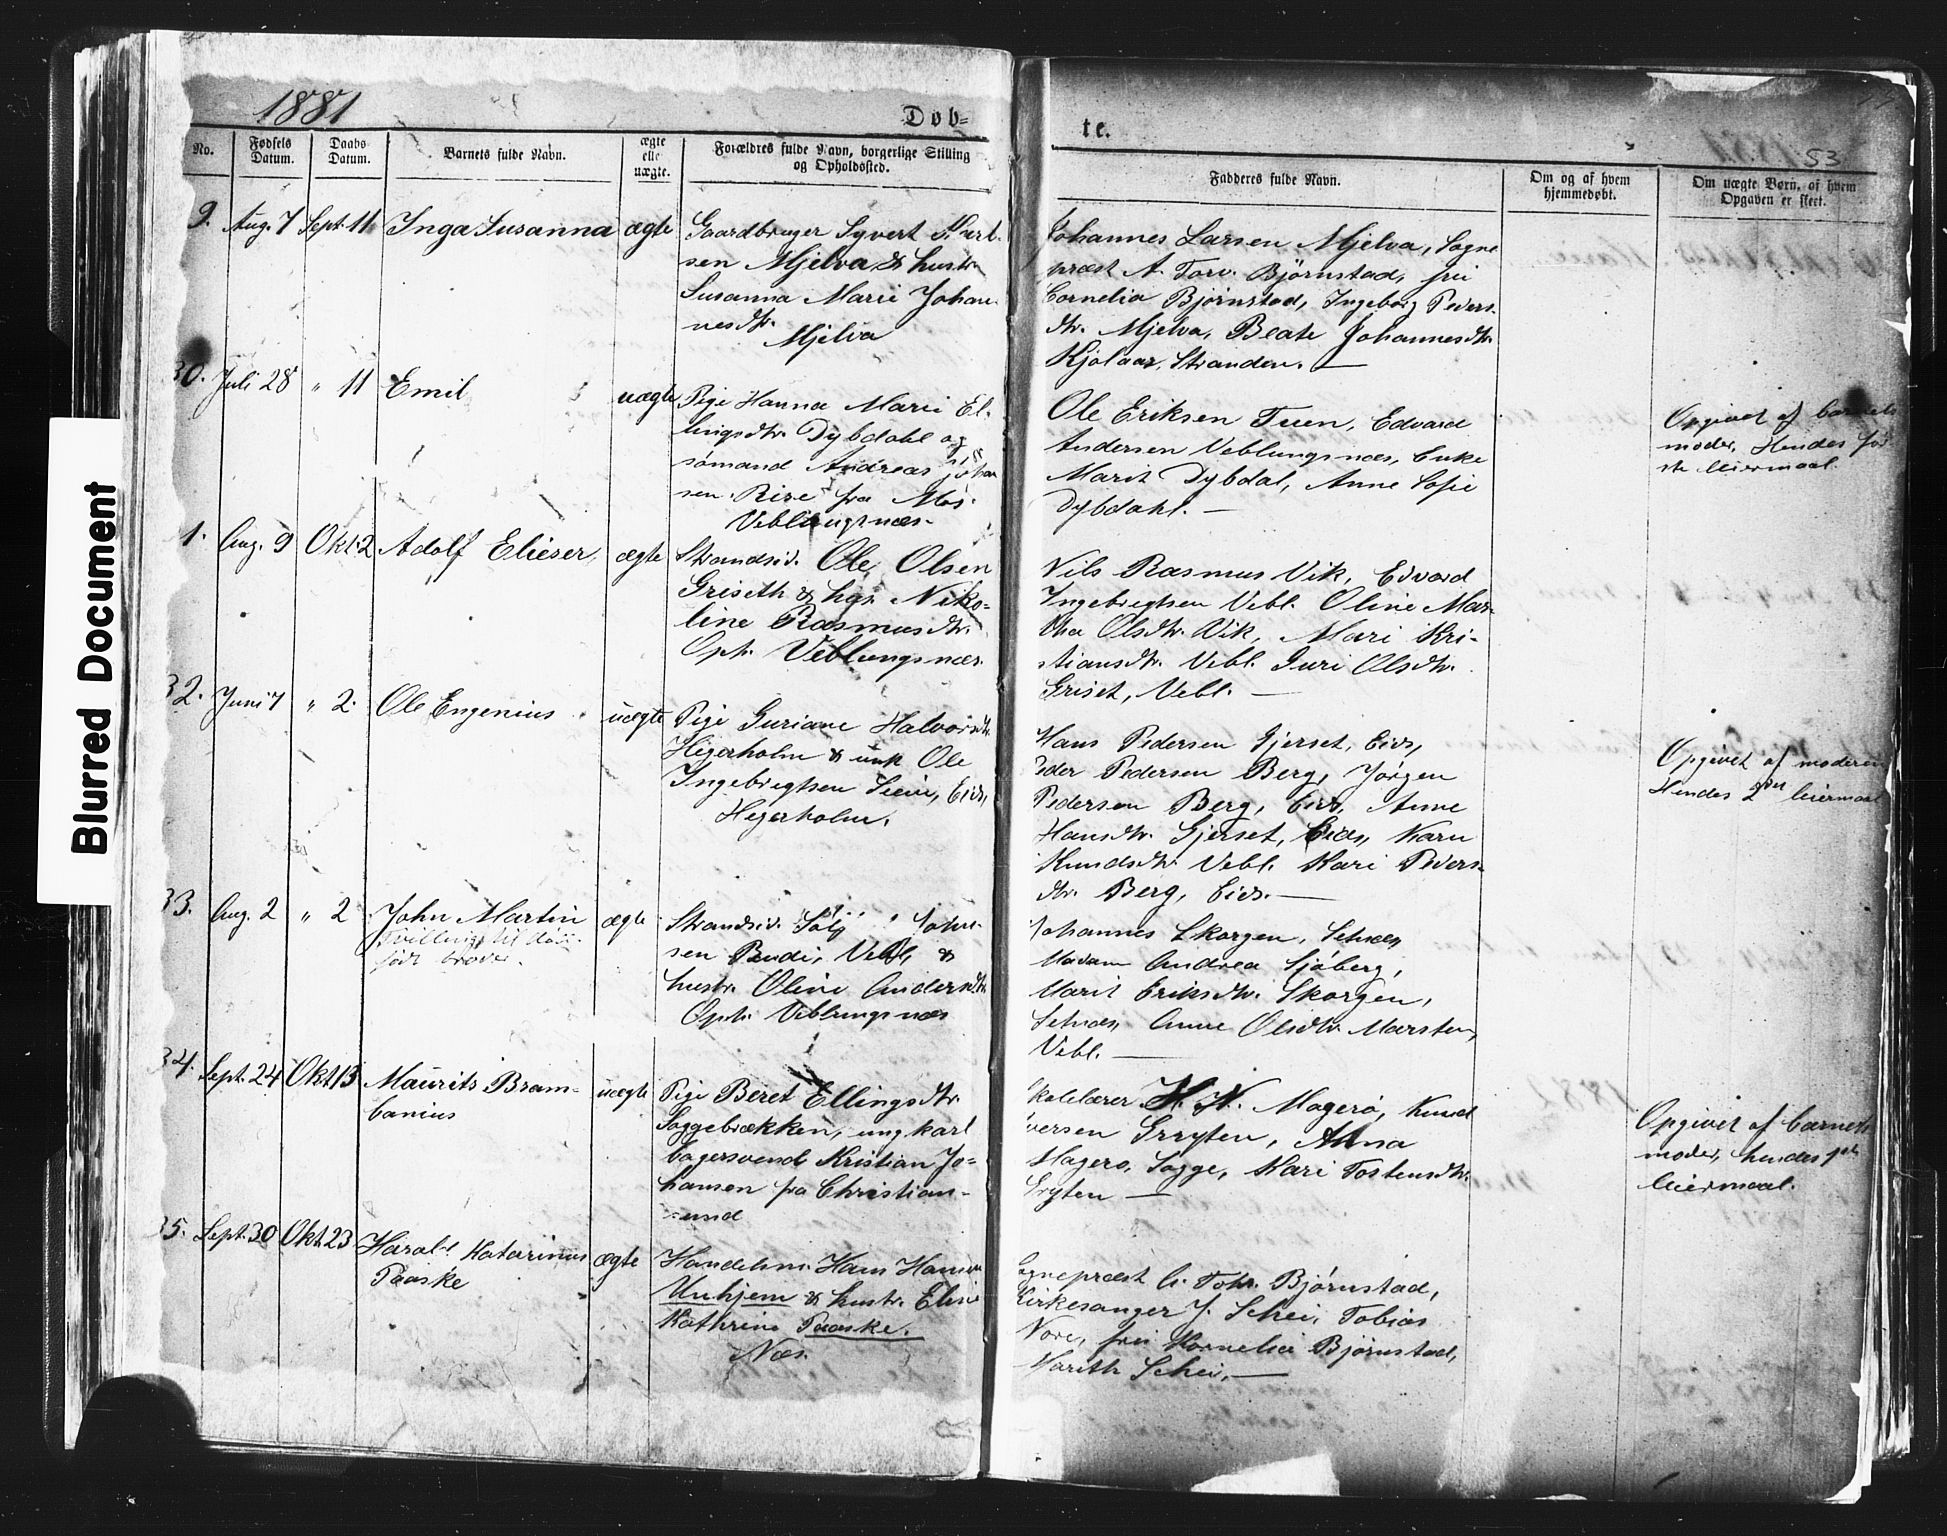 Blurred Document
1881
Døb=
te.
53
No.
Fødsels Datum.
Daabs Datum.
Barnets fulde Navn.
ægte elle uægte.
Forældres fulde Navn, borgerlige Stilling og Opholdssted.
Fadderes fulde Navn.
Om og af hvem hjemmedøbt.
Om uægte Børn, af hvem Opgaven er skeet.
9. Aug. 7 Sept. 11 Inga Susanna ægte
Gaardbruger Syvert
sen Mjelva & hustr.
Susanna Marie Johan
nesdtr.
Mjelva
Johannes Larsen Mjelva, Sogne
præst A. Torv. Bjørnstad, frü
Cornelia Bjørnstad, Ingeborg Peders-
dtr. Mjelva, Beate Johannesdtr.
Stranden. —
30. Juli 28 " 11 Emil uægte
Pige Hanna Marie El-
lingsdtr. Dybdahl og
sømand Andreas Johan
sen fra
Veblungsnæs.
Ole Eriksen Tuen, Edvard
Andersen Veblungsnæs, Enke
Marit Dybdal, Anne Sofie
Dybdahl. —
Opgivet af barnets
moder, Hendes før
ste leiermaal.
1. Aug. 9 Okt. 2 Adolf Elieser, ægte
Strandsid. Ole Olsen
Griseth & hus. Niko-
line Rasmusdtr.
Oph. Veblungsnæs.
Nils Rasmus Vik, Edvard
Ingebrigtsen Vebl. Oline Mar-
tha Olsdtr. Vik, Mari Kri-
stiansdtr. Vebl. Guri Olsdtr.
Griset, Vebl. —
32. Juni 7 " 2. Ole Engenius uægte
Pige Guriane Halvorsdtr.
Hegerholm & unk Ole
Ingebrigtsen Eids,
Hegerholm.
Hans Pedersen Gjerset, Eids,
Peder Pedersen Berg, Jørgen
Pedersen Berg, Eids, Anne
Hansdtr. Gjerset, Eids, Karn
Knudsdtr. Vebl. Kari Peders-
dtr. Berg, Eids. —
Opgivet af moderen
Hendes 2det leiermaal
33. Aug. 2 " 2 John Martin ægte
Tvilling til død-
født broder.
Strandsid. John-
sen Vebl, &
hustr. Oline Andersdtr.
Oph. Veblungsnæs
Johannes Skorgen, Setnæs,
Madam Andrea Sjøberg,
Marit Eriksdtr. Skorgen,
Setnæs, Anne Olsdtr. Marsten,
Vebl. —
34. Sept. 24 Okt. 13 Maurits Bram- uægte
banius
Pige Beret Ellingsdtr.
Soggebrækken, ungkarl
bagersvend Kristian Jo-
hansen fra Christian-
sund
Skolelærer H. N. Magerø, Knud
Iversen Gryten, Anna
Magerø, Sogge, Kari Tostensdtr.
Gryten —
Opgivet af barnets
moder, hendes 1ste
leiermaal.
35. Sept. 30 Okt. 23 Harald Katarinus ægte
Paaske
Handelsm. Hans Hansen
Unhjem & hustr. Elise
Kathrine Paaske.
Næs.
Sognepræst A. Torv. Bjørnstad,
Kirkesanger J. Schei, Tobias
Nore, frü Kornelia Bjørnstad,
Marith Schei. —